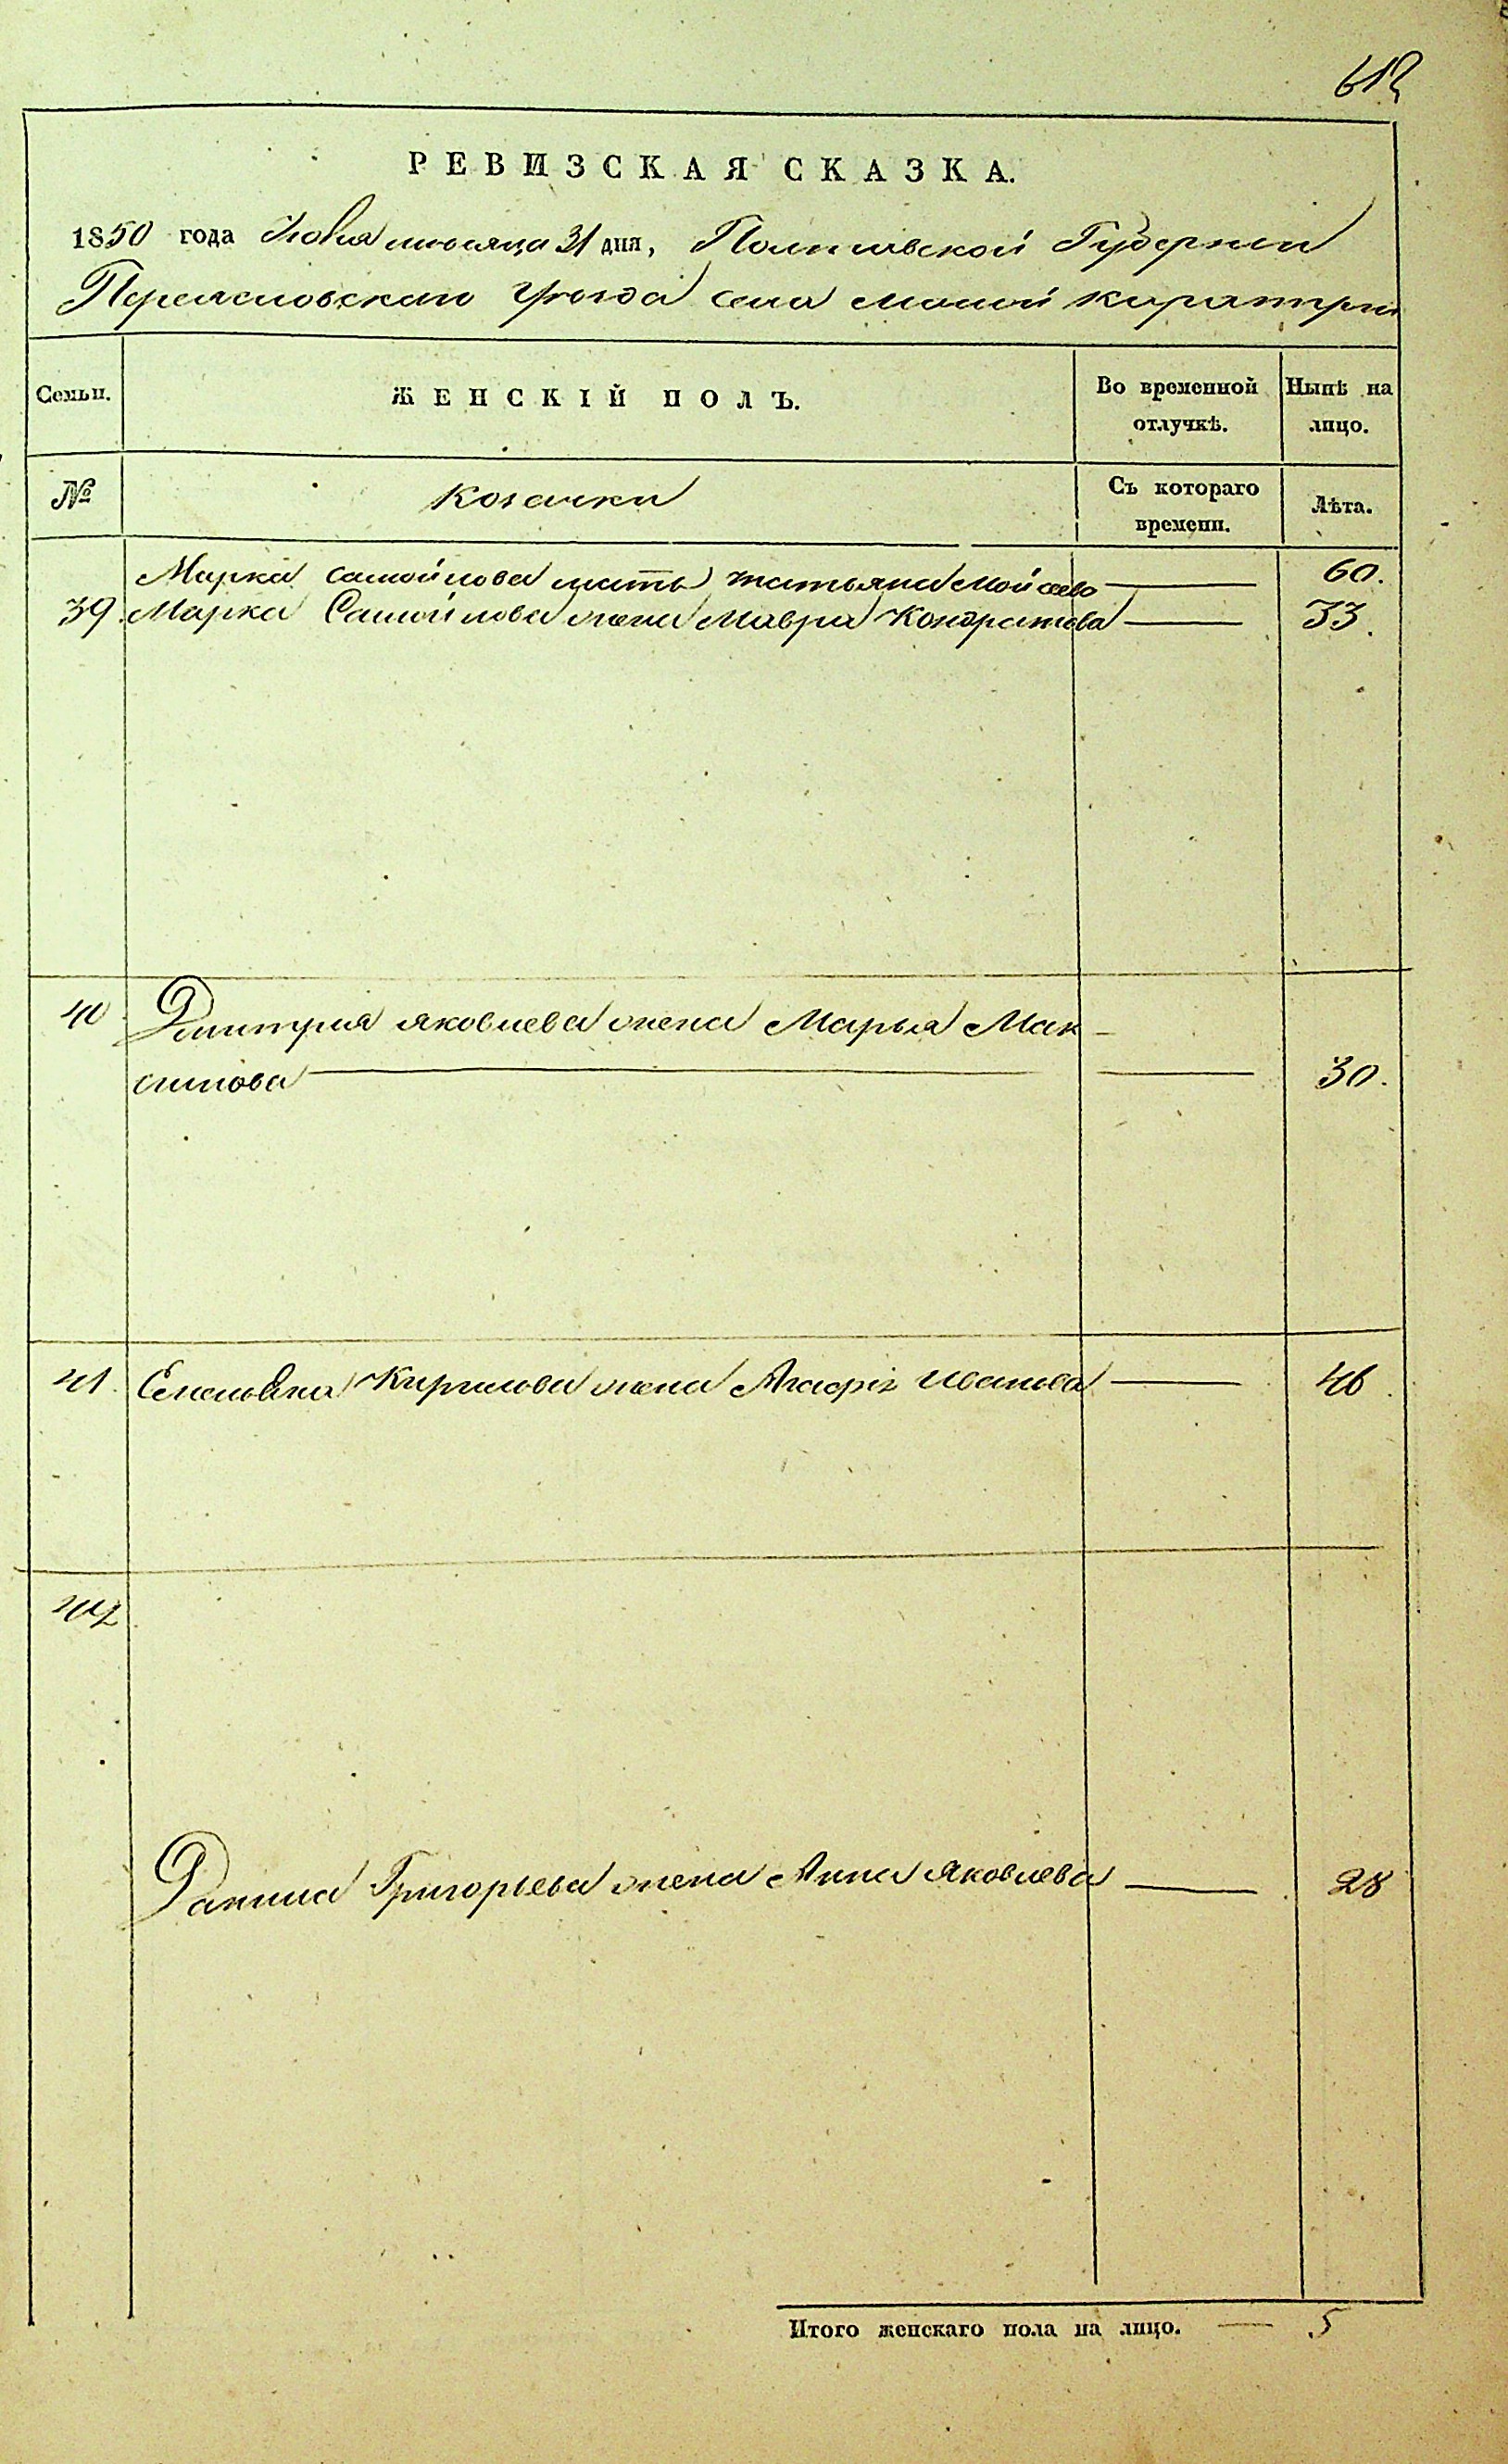 612
РЕВИЗСКАЯ СКАЗКА.
1850 года месяца 31 дня, Полтавской Губернии
Переяславскаго Уезда села малой каратули
Семьи. ЖЕНСКІЙ ПОЛЪ. Во временной отлучкѣ. Нынѣ на лицо.
№ Козачки Съ котораго времени. Лѣта.
Марка самойлова мать татьяна Мойсеева 60.
39. Марка Самойлова жена Мавра Кондратова 33.
40. Дмитрия яковлева жена Марья Мак-
симова 30.
41. Кирилова жена Агафія иванова 46.
42
Данила Григорьева жена Анна Яковлева 28
Итого женскаго пола на лицо. 5